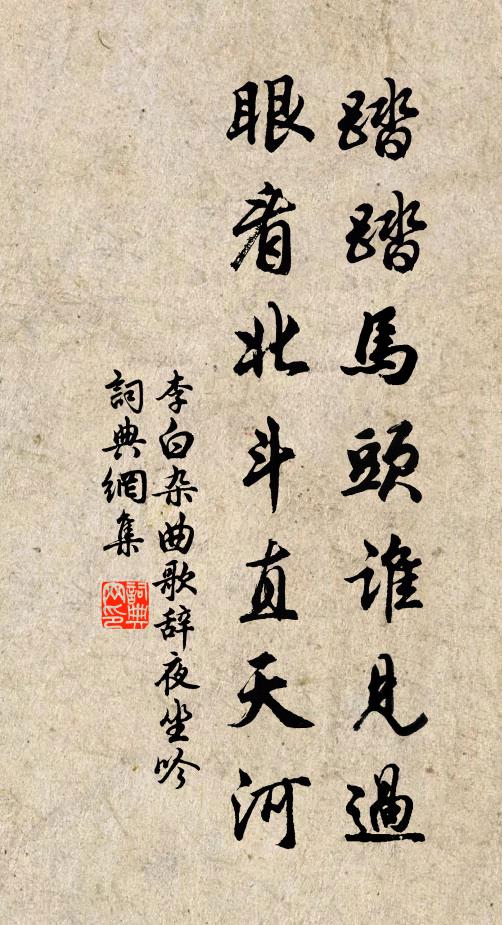 踏踏馬頭誰見過
眼看北斗直天河
李白杂曲歌辞夜坐吟
詞典網集
詞典網印